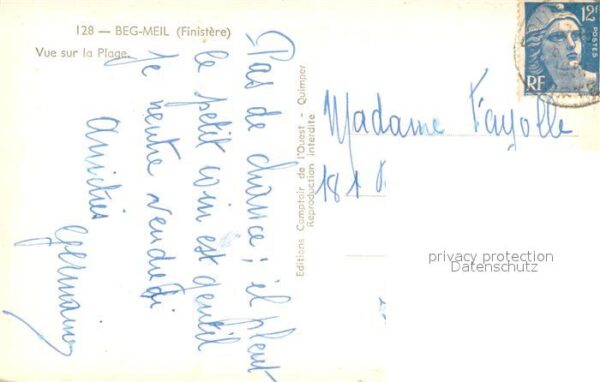 128 — BEG-MEIL (Finistère)
Vue sur la Plage.
Pas de chance; il pleut
le petit coin est gentil
Je rentre vendredi
Amitiés
Germaine
Editions Comptoir de l'Ouest - Quimper
Reproduction interdite
12F
POSTES
RF
Madame Fayolle
181
privacy protection
Datenschutz